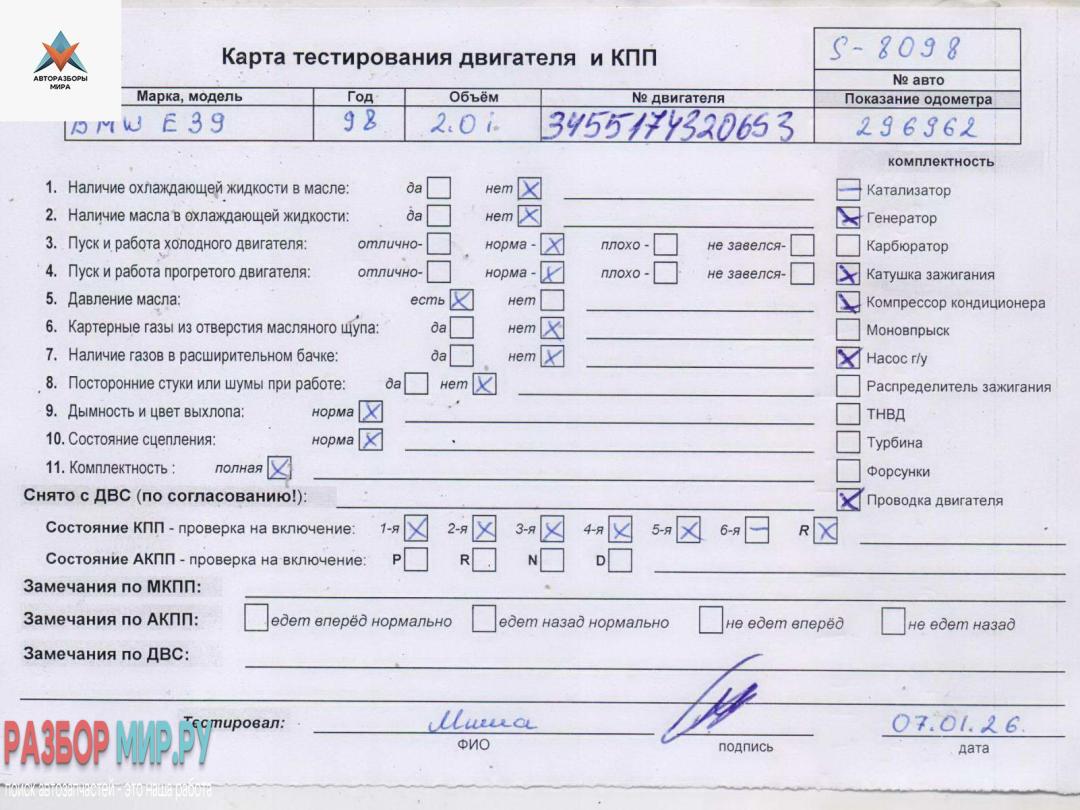 АВТОРАЗБОРЫ
МИРА
Карта тестирования двигателя и КПП
S-8098
№ авто
Марка, модель Год Объём № двигателя Показание одометра
BMW E39 98 2.0 i. 3455174320653 296962
комплектность
1. Наличие охлаждающей жидкости в масле: да нет Катализатор
2. Наличие масла в охлаждающей жидкости: да нет Генератор
3. Пуск и работа холодного двигателя: отлично- норма - плохо - не завелся- Карбюратор
4. Пуск и работа прогретого двигателя: отлично- норма - плохо - не завелся- Катушка зажигания
5. Давление масла: есть нет Компрессор кондиционера
6. Картерные газы из отверстия масляного щупа: да нет Моновпрыск
7. Наличие газов в расширительном бачке: да нет Насос г/у
8. Посторонние стуки или шумы при работе: да нет Распределитель зажигания
9. Дымность и цвет выхлопа: норма ТНВД
10. Состояние сцепления: норма Турбина
11. Комплектность : полная Форсунки
Снято с ДВС (по согласованию!): Проводка двигателя
Состояние КПП - проверка на включение: 1-я 2-я 3-я 4-я 5-я 6-я R
Состояние АКПП - проверка на включение: P R N D
Замечания по МКПП:
Замечания по АКПП: едет вперёд нормально едет назад нормально не едет вперёд не едет назад
Замечания по ДВС:
Тестировал: Миша 07.01.26.
ФИО подпись дата
РАЗБОР МИР.РУ
поиск автозапчастей - это наша работа